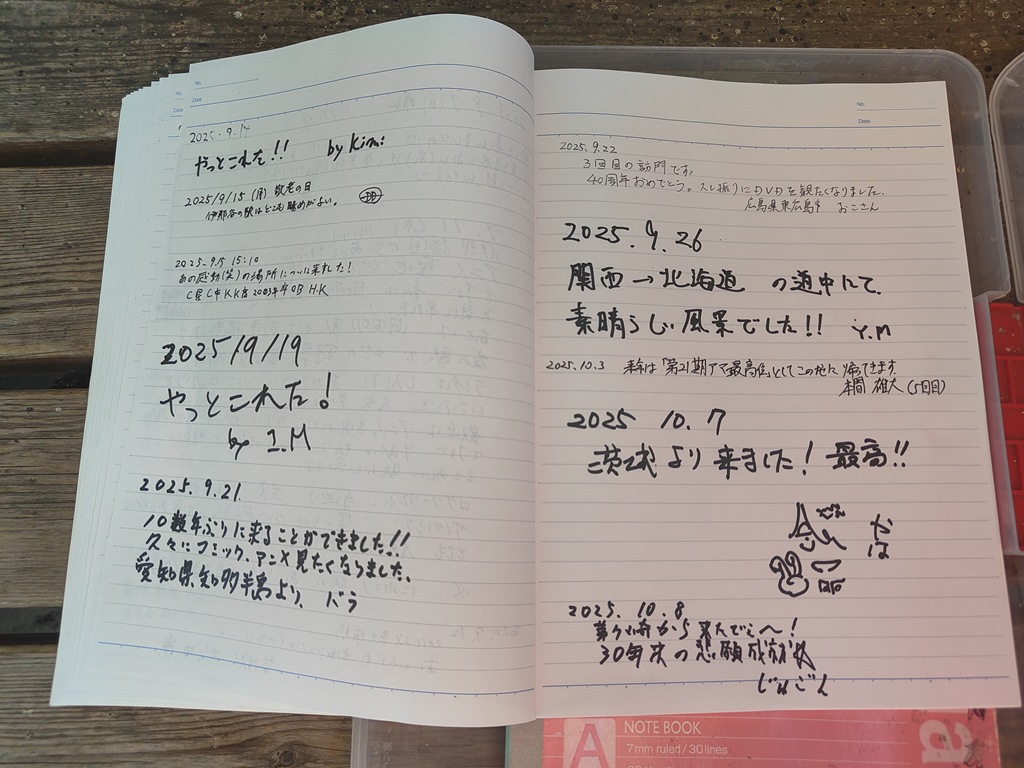 No.
Date
2025.9.14
やっとこれた!! by Kimi
2025/9/15 (月) 敬老の日
伊那谷の駅はどこも眺めがよい。
2025.9.15 15:10
あの感動(笑)の場所についに来れた!
2025/9/19
やっとこれた!
by I.M
2025.9.21
10数年ぶりに来ることができました!!
久々にコミック、アニメ見たくなりました。
愛知県知多半島より、バラ
No.
Date
2025.9.22
3回目の訪問です。
40周年おめでとう。久し振りにDVDを観たくなりました。
広島県東広島市 おこさん
2025.9.26
関西→北海道 の道中にて、
素晴らしい風景でした!! Y.M
2025.10.3 来年は「第21期 最高位」としてこの地に 帰ってきます
本間 雄大 (5日目)
2025 10.7
茨城より来ました! 最高!!
2025.10.8
茅ヶ崎から来たでぇへ!
30年来の悲願成就
じゅごん
A
NOTE BOOK
7mm ruled / 30 lines